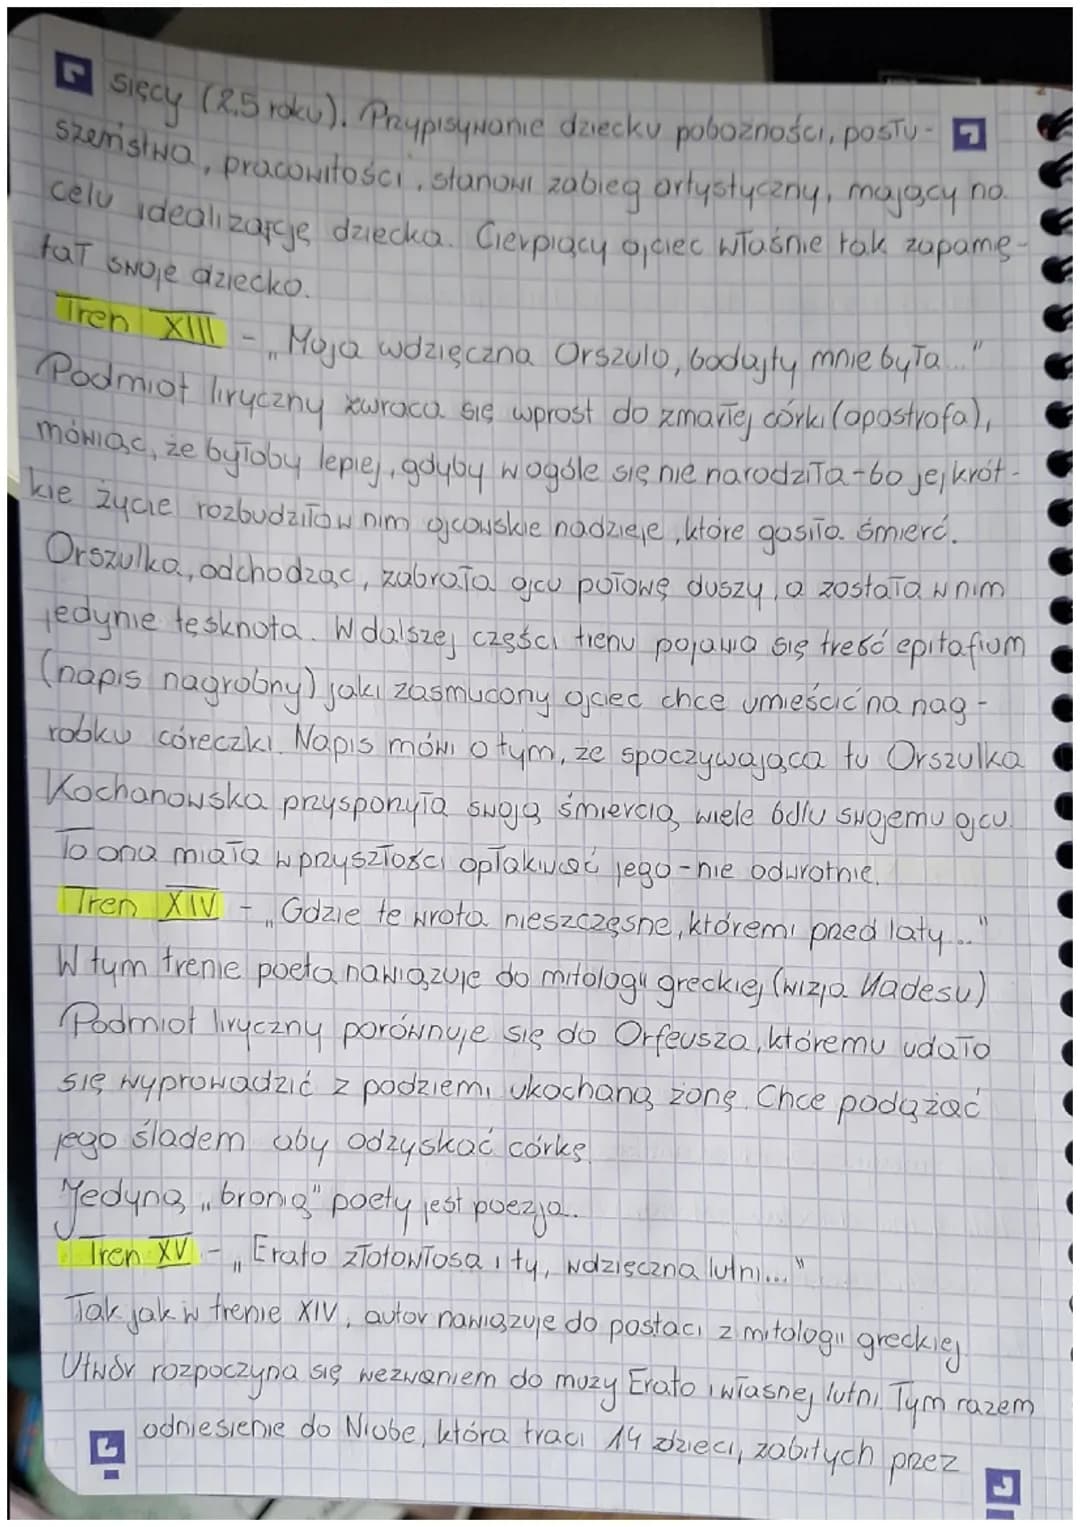 sięcy (2,5 roku). Przypisywanie dziecku pobożności, posłu-
szeństwa, pracowitości, stanowi zabieg artystyczny, mający na
celu idealizację dziecka. Cierpiący ojciec właśnie tak zapamię-
tał swoje dziecko.
Tren XIII - „Moja wdzięczna Orszulo, bodajty mnie była..."
Podmiot liryczny zwraca się wprost do zmarłej córki (apostrofa),
mówiąc, że byłoby lepiej, gdyby wogóle się nie narodziła - bo jej krót-
kie życie rozbudziło w nim ojcowskie nadzieje, które gasiła śmierć.
Orszulka, odchodząc, zabrała ojcu połowę duszy, a została w nim
jedynie tęsknota. W dalszej części trenu pojawia się treść epitafium
(napis nagrobny) jaki zasmucony ojciec chce umieścić na nag-
robku córeczki. Napis mówi o tym, że spoczywająca tu Orszulka
Kochanowska przysponyła swoją śmiercią wiele bólu swojemu ojcu.
To ona miała w przyszłości opłakiwać jego - nie odwrotnie.
Tren XIV - „Gdzie te wrota nieszczęsne, któremi przed laty..."
W tym trenie poeta nawiązuje do mitologii greckiej (wizja Hadesu)
Podmiot liryczny porównuje się do Orfeusza, któremu udało
się wyprowadzić z podziemi ukochaną żonę. Chce podążać
jego śladem aby odzyskać córkę.
Jedyną „bronią" poety jest poezja.
Tren XV - „Erato złotowłosa i ty, wdzięczna lutni..."
Tak jak w trenie XIV, autor nawiązuje do postaci z mitologii greckiej.
Utwór rozpoczyna się wezwaniem do muzy Erato i własnej lutni. Tym razem
odniesienie do Niobe, która traci 14 dzieci, zabitych przez